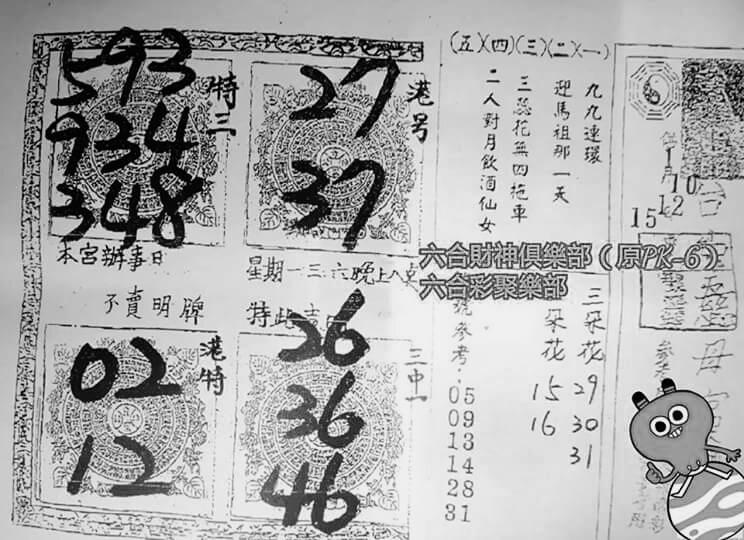 593
934
348
特三
27
37
港号
本宮辦事日
星期一三六晚上八
不賣明牌
特此
02
12
港特
26
36
46
三中一
(五)(四)(三)(二)(一)
九九連環
迎馬祖那一天
三蕊花無四拖車
二人對月飲酒仙女
六合財神俱樂部（原PK-6）
六合彩聚樂部
三朵花
29
30
31
二朵花
15
16
號參考：
05
09
13
14
28
31
1
10
12
15
母